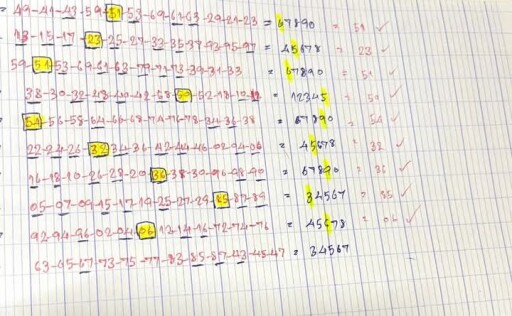 = 49-41-43-59-51-53-69-61-63-29-21-23 = 67890 = 51 ✓
- 13-15-17-23-25-27-33-35-37-93-95-97 = 45678 = 23 ✓
59-51-53-69-61-63-79-71-73-39-31-33 = 67890 = 51 ✓
38-30-32-48-40-42-58-50-52-18-10-12 = 12345 = 50 ✓
54-56-58-64-66-68-74-76-78-34-36-38 = 67890 = 54 ✓
22-24-26-32-34-36-42-44-46-02-04-06 = 45678 = 32 ✓
16-18-10-26-28-20-36-38-30-96-98-90 = 67890 = 36 ✓
05-07-09-15-17-19-25-27-29-85-87-89 = 34567 = 85 ✓
92-94-96-02-04-06-12-14-16-72-74-76 = 45678 = 06 ✓
63-65-67-73-75-77-83-85-87-43-45-47 = 34567